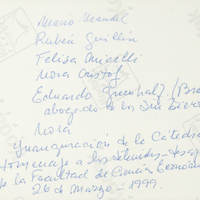 Mario Mandel
Rubén Guillén
Felisa Miceli
Nora Cristof
Eduardo Greenhalg /Bra
abogado de los Sin Tierra
Nora
Inauguración de la Cátedra
Homenaje a los detenidos-desap
de la Facultad de Ciencia Económ
26 de Marzo - 1999.